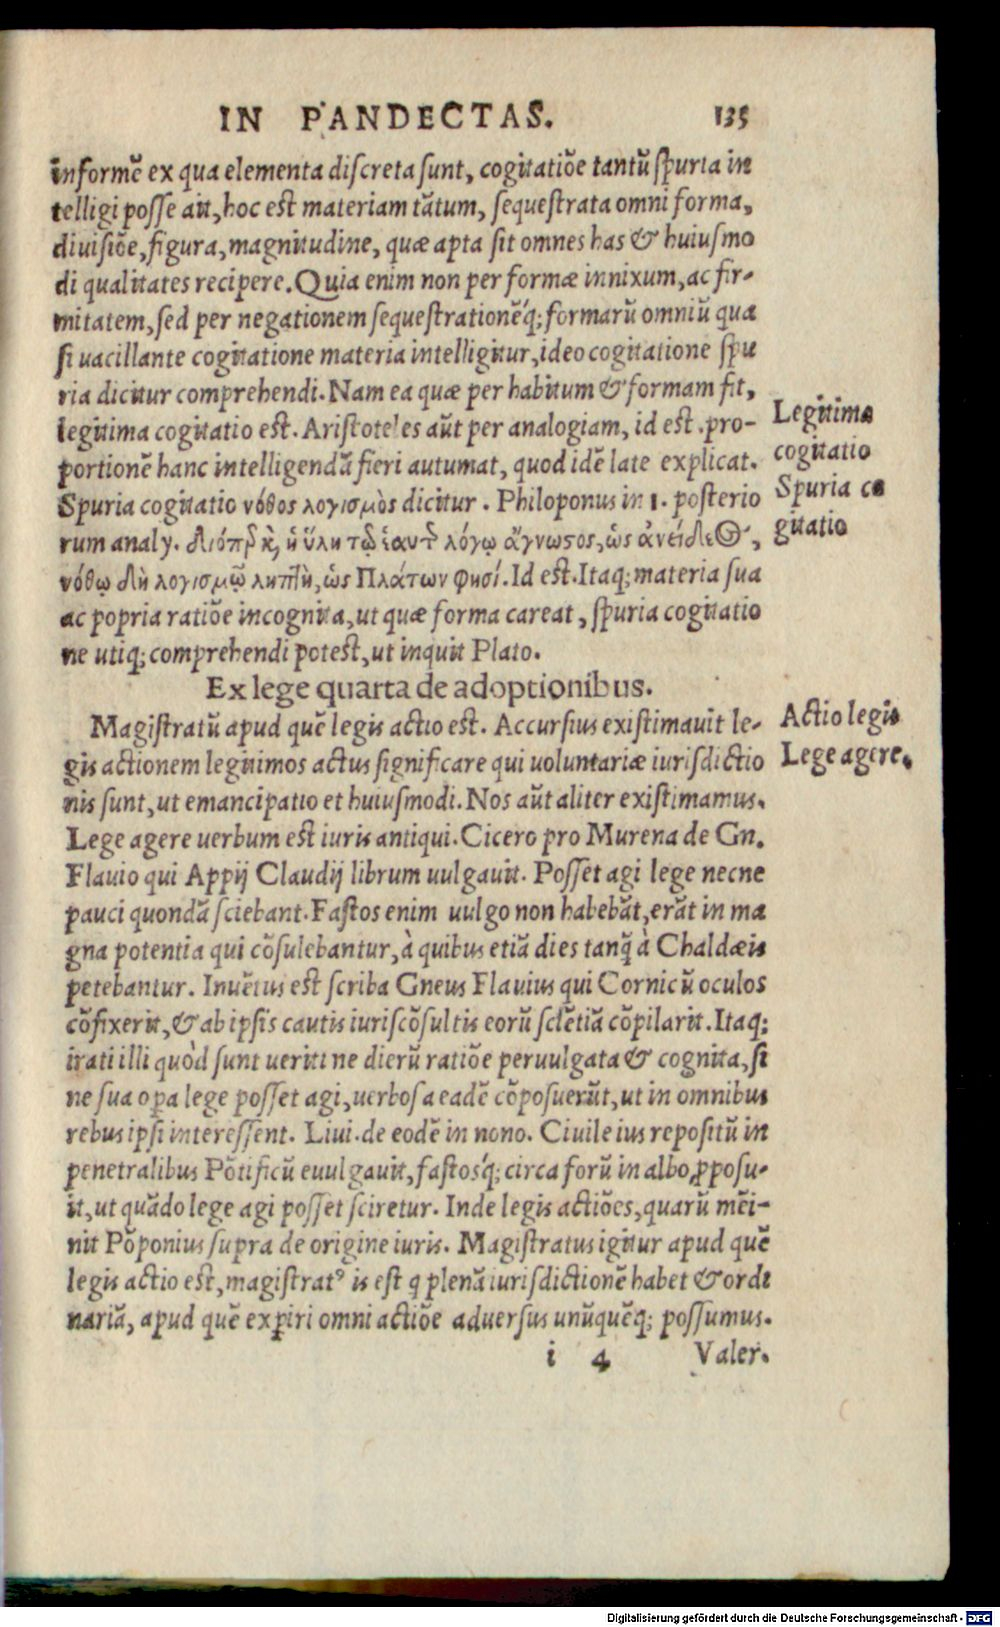 IN PANDECTAS. 135
informē ex qua elementa discreta sunt, cogitatiōe tantū spuria in
telligi posse ait, hoc est materiam tātum, sequestrata omni forma,
diuisiōe, figura, magnitudine, quæ apta sit omnes has & huiusmo
di qualitates recipere. Quia enim non per formæ innixum, ac fir-
mitatem, sed per negationem sequestrationēq́; formarū omniū qua
si uacillante cogitatione materia intelligitur, ideo cogitatione spu
ria dicitur comprehendi. Nam ea quæ per habitum & formam fit,
legitima cogitatio est. Aristoteles aūt per analogiam, id est .pro-
portionē hanc intelligendā fieri autumat, quod idē late explicat.
Spuria cogitatio νόθος λογισμὸς dicitur. Philoponus in 1. posterio
rum analy. διόπερ κ̀, ἡ ὕλη τῷ ἑαυτ͂ λόγῳ ἄγνωτος, ὡς ἀνείδεος,
νόθῳ δὴ λογισμῷ ληπτὴ, ὡς Πλάτων φησί. Id est. Itaq; materia sua
ac popria ratiōe incognita, ut quæ forma careat, spuria cogitatio
ne utiq; comprehendi potest, ut inquit Plato.
Legitima
cogitatio
Spuria co
gitatio
Ex lege quarta de adoptionibus.
Magistratū apud quē legis actio est. Accursius existimauit le-
gis actionem legitimos actus significare qui uoluntariæ iurisdictio
nis sunt, ut emancipatio et huiusmodi. Nos aūt aliter existimamus.
Lege agere uerbum est iuris antiqui. Cicero pro Murena de Gn.
Flauio qui Appij Claudij librum uulgauit. Posset agi lege necne
pauci quondā sciebant. Fastos enim uulgo non habebāt, erāt in ma
gna potentia qui cōsulebantur, à quibus etiā dies tanq̄ à Chaldæis
petebantur. Inuētus est scriba Gneus Flauius qui Cornicū oculos
cōfixerit, & ab ipsis cautis iuriscōsultis eorū sciētiā cōpilarit. Itaq;
irati illi quòd sunt ueriti ne dierū ratiōe peruulgata & cognita, si
ne sua opa lege posset agi, uerbosa eadē cōposuerūt, ut in omnibus
rebus ipsi interessent. Liui. de eodē in nono. Ciuile ius repositū in
penetralibus Pōtificū euulgauit, fastosq́; circa forū in albo ꝓposu-
it, ut quādo lege agi posset sciretur. Inde legis actiōes, quarū mēi-
nit Pōponius supra de origine iuris. Magistratus igitur apud quē
legis actio est, magistratꝰ is est q plenā iurisdictionē habet & ordi
nariā, apud quē expiri omni actiōe aduersus unūquēq; possumus.
Actio legis
Lege agere.
i 4 Valer.
Digitalisierung gefördert durch die Deutsche Forschungsgemeinschaft - DFG